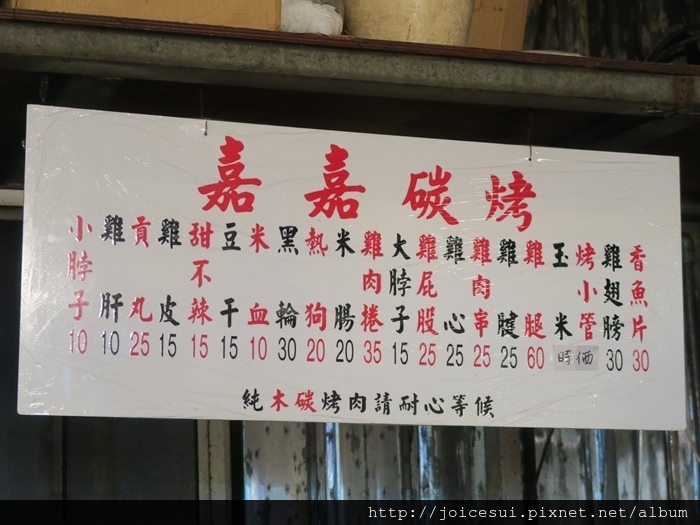 嘉嘉碳烤
小脖子 10
雞肝 10
貢丸 25
雞皮 15
甜不辣 15
豆干 15
米血 10
黑輪 30
熱狗 20
米腸 20
雞肉捲 35
大脖子 15
雞屁股 25
雞心 25
雞肉串 25
雞腱 25
雞腿 60
玉米
烤小管
時価
雞翅膀 30
香魚片 30
純木碳烤肉請耐心等候
http://joicesui.pixnet.net/album